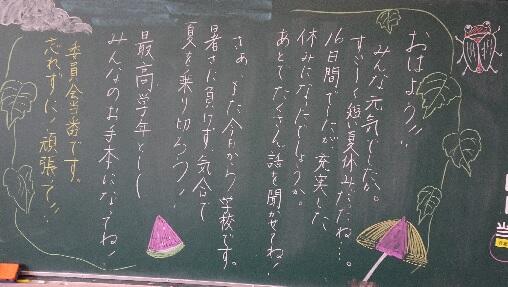 おはよう!!
みんな元気でしたか。
すごーく短い夏休みだったね…。
16日間でしたが、充実した
休みになったでしょうか。
あとでたくさん話を聞かせてね!
さぁ、また今日から学校です。
暑さに負けず気合で
夏を乗り切ろう!
最高学年として
みんなのお手本になってね!
委員会当番です。
忘れずに!頑張って!!
当